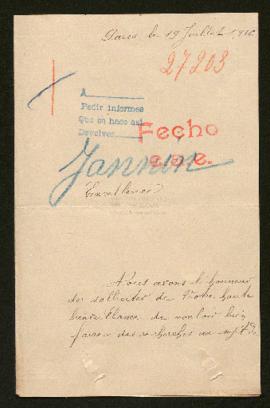 Paris le 19 Juillet 1916
27203
A
Pedir informes
Que se hace así
Devolver
Fecho
Jannin
Excellence
Nous avons l'honneur
de solliciter de Votre haute
bienveillance de vouloir bien
faire des recherches au sujet de